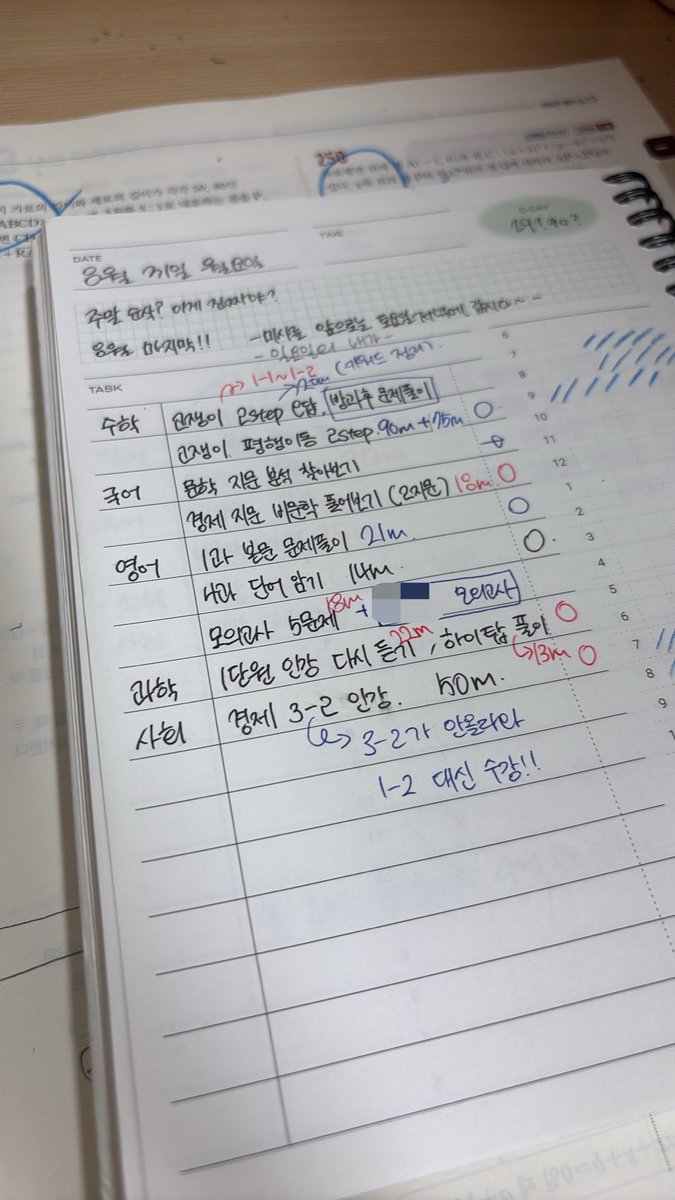 250
DATE
8월 31일 월요일
TIME
D-DAY
주말 순삭? 이게 진짜야?
8월 마지막!!
-미사를 앞으로는 토요일저녁에 갑시다~-
-일요일의 내가-
TASK
1-1~1-2
수학
고쟁이 2step 오답, 방과후 문제풀이
고쟁이 평행이동 2step 90m + 75m
국어
문학 지문 분석 찾아보기
경제 지문 비문학 풀어보기 (2지문) 18m
영어
1과 본문 문제풀이 21m.
4과 단어 암기 14m.
모의고사 5문제 18m + 모의고사
과학
1단원 인강 다시 듣기 22m, 하이탑 풀이
13m
사회
경제 3-2 인강. 50m.
3-2가 안올라와
1-2 대신 수강!!
6
7
8
9
10
11
12
1
2
3
4
5
6
7
8
9